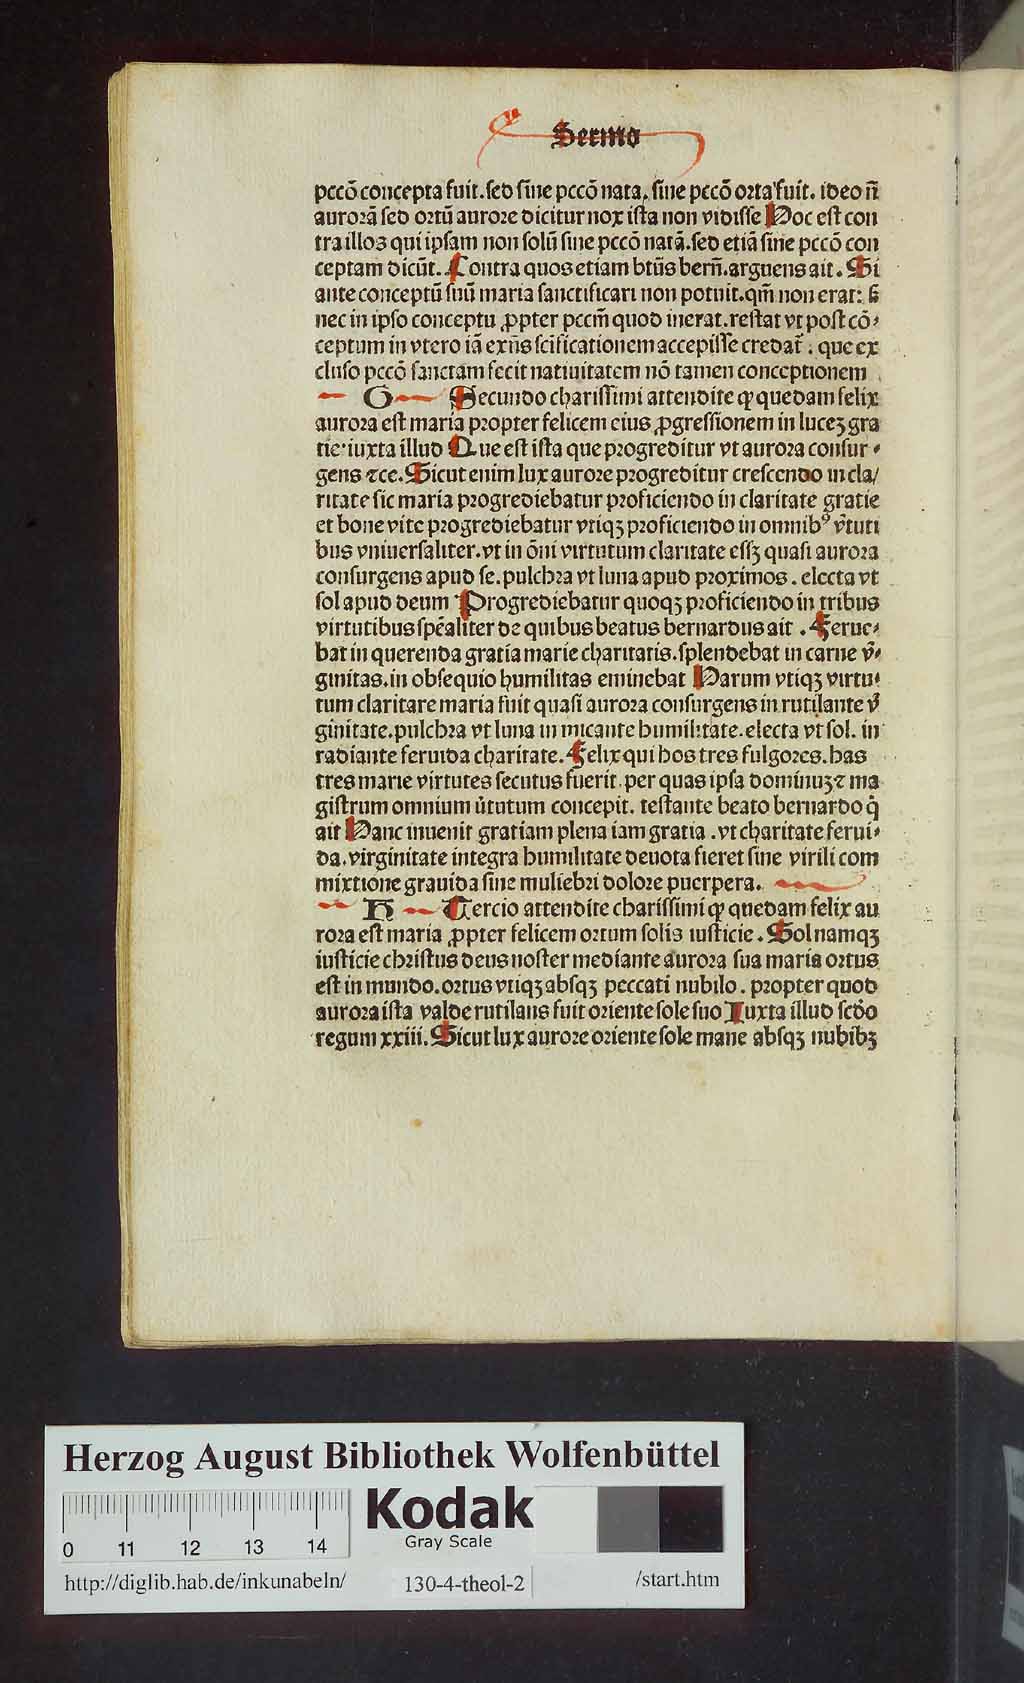 Sermo
pccō concepta fuit. sed sine pccō nata. sine pccō orta fuit. ideo n̄
aurorā sed ortū aurore dicitur nox ista non vidisse Hoc est con
tra illoꝝ qui ipsam non solū sine pccō natā. sed etiā sine pccō con
ceptam dicūt. Contra quos etiam btūs bern̄. arguens ait. Si
ante conceptū suū maria sanctificari non potuit. qm̄ non erat: s̄
nec in ipso conceptu ꝓpter pccm̄ quod inerat. restat vt post cō-
ceptum in vtero iā exn̄s scificationem accepisse credat̄. que ex
cluso pccō sanctam fecit natiuitatem nō tamen conceptionem
G Secundo charissimi attendite ꝙ quedam felix
aurora est maria propter felicem eius ꝓgressionem in luceꝫ gra
tie. iuxta illud Que est ista que progreditur vt aurora consur-
gens ⁊ce. Sicut enim lux aurore progreditur crescendo in cla/
ritate sic maria progrediebatur proficiendo in claritate gratie
et bone vite progrediebatur vtiqꝫ proficiendo in omnibꝰ v̄tuti
bus vniuersaliter. vt in ōni virtutum claritate essꝫ quasi aurora
consurgens apud se. pulchra vt luna apud proximos. electa vt
sol apud deum Progrediebatur quoqꝫ proficiendo in tribus
virtutibus spēaliter de quibus beatus bernardus ait. Ferue-
bat in querenda gratia marie charitatis. splendebat in carne v̄-
ginitas. in obsequio humilitas eminebat Harum vtiqꝫ virtu-
tum claritare maria fuit quasi aurora consurgens in rutilante v̄
ginitate. pulchra vt luna in micante humilitate. electa vt sol. in
radiante feruida charitate. Felix qui hos tres fulgores. has
tres marie virtutes secutus fuerit. per quas ipsa dominuꝫ ⁊ ma
gistrum omnium v̄tutum concepit. testante beato bernardo q̄
ait Hanc inuenit gratiam plena iam gratia. vt charitate ferui-
da. virginitate integra humilitate deuota fieret sine virili com
mixtione grauida sine muliebri dolore puerpera.
H Tercio attendite charissimi ꝙ quedam felix au
rora est maria ꝓpter felicem ortum solis iusticie. Sol namqꝫ
iusticie christus deus noster mediante aurora sua maria ortus
est in mundo. ortus vtiqꝫ absqꝫ peccati nubilo. propter quod
aurora ista valde rutilans fuit oriente sole suo Iuxta illud scdo
regum xxiii. Sicut lux aurore oriente sole mane absqꝫ nubibꝫ
Herzog August Bibliothek Wolfenbüttel
Kodak
Gray Scale
0 11 12 13 14
http://diglib.hab.de/inkunabeln/ 130-4-theol-2 /start.htm